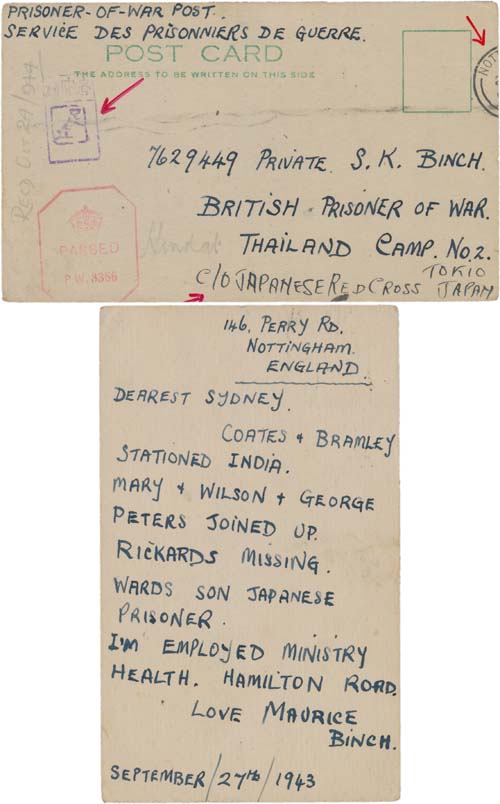 PRISONER-OF-WAR POST.
SERVICE DES PRISONNIERS DE GUERRE.
POST CARD
THE ADDRESS TO BE WRITTEN ON THIS SIDE
NOT
Recd Oct 24/1944
7629449 PRIVATE. S. K. BINCH.
BRITISH. PRISONER OF WAR.
THAILAND CAMP. No. 2.
C/O JAPANESE RED CROSS TOKIO
JAPAN
PASSED
P.W. 3356
146, PERRY RD.
NOTTINGHAM.
ENGLAND.
DEAREST SYDNEY.
COATES & BRAMLEY
STATIONED INDIA.
MARY & WILSON & GEORGE
PETERS JOINED UP.
RICKARDS MISSING.
WARDS SON JAPANESE
PRISONER.
I'M EMPLOYED MINISTRY
HEALTH. HAMILTON ROAD.
LOVE MAURICE
BINCH.
SEPTEMBER/27TH/1943